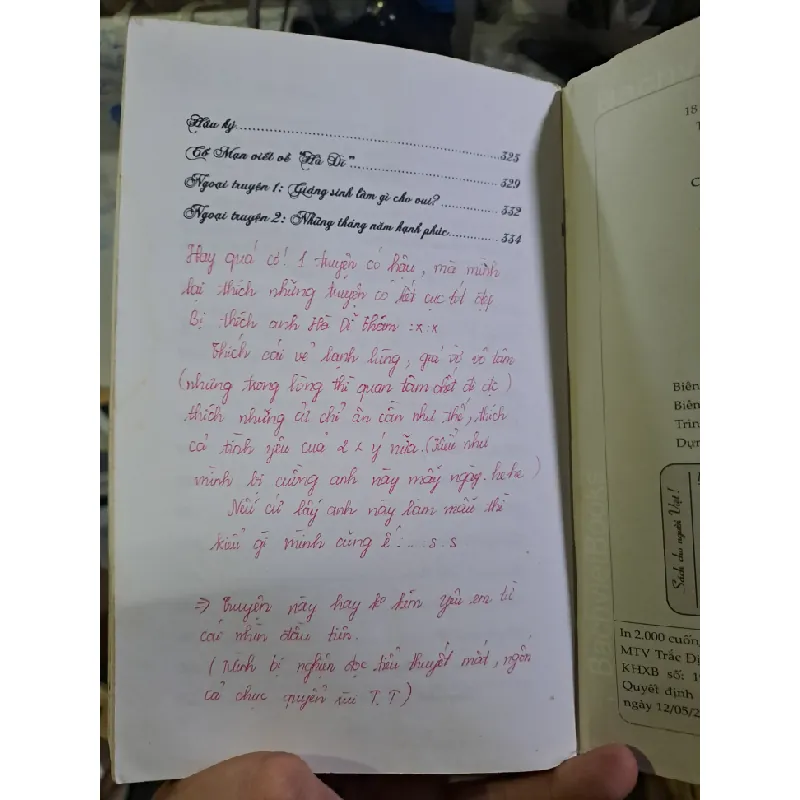 Hậu ký 325
Cố Mạn viết về "Hà Dĩ" 329
Ngoại truyện 1: Giáng sinh làm gì cho vui? 332
Ngoại truyện 2: Những tháng năm hạnh phúc 334
Hay quá cơ! 1 truyện có hậu, mà mình
lại thích những truyện có kết cục tốt đẹp
Bị thích anh Hà Dĩ Thâm :x:x
Thích cái vẻ lạnh lùng, giả vờ vô tâm
(nhưng trong lòng thì quan tâm chết đi đc)
thích những cử chỉ ân cần như thế, thích
cả tình yêu của 2 x ý nữa. (Hầu như
mình bị cuồng anh này mấy ngày. hehe.)
Nếu cứ lấy anh này làm mẫu thì
kiểu gì mình cũng ế :... s.s
=> truyện này hay ko kém yêu em từ
cái nhìn đầu tiên.
(Mình bị nghiện đọc tiểu thuyết mất, ngốn
cả chục quyển rùi T.T)
18
T
C
Biên
Biên
Trìn
Dựn
Sách cho người Việt!
In 2.000 cuốn
MTV Trắc Dị
KHXB số: 1
Quyết định
ngày 12/05/2